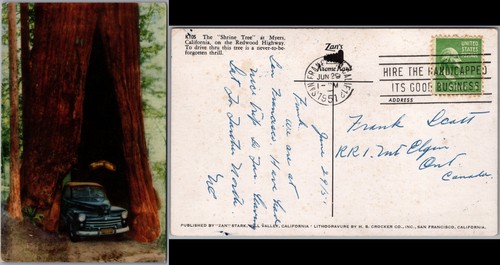 K106 The "Shrine Tree" at Myers,
California, on the Redwood Highway.
To drive thru this tree is a never-to-be-
forgotten thrill.
Zan's
Kreme Kard
SAN FRANCISCO, CALIF.
JUN 29
1951
HIRE THE HANDICAPPED
ITS GOOD BUSINESS
UNITED STATES
ADDRESS
June 29 51
Frank
We are at
San Francisco. Have had
nice trip so Far. Going
Get To Further North.
Frank Scott
R.R.1. Mt Elgin
Ont
Canada.
PUBLISHED BY "ZAN" STARK, MILL VALLEY, CALIFORNIA * LITHOGRAVURE BY H. S. CROCKER CO., INC., SAN FRANCISCO, CALIFORNIA